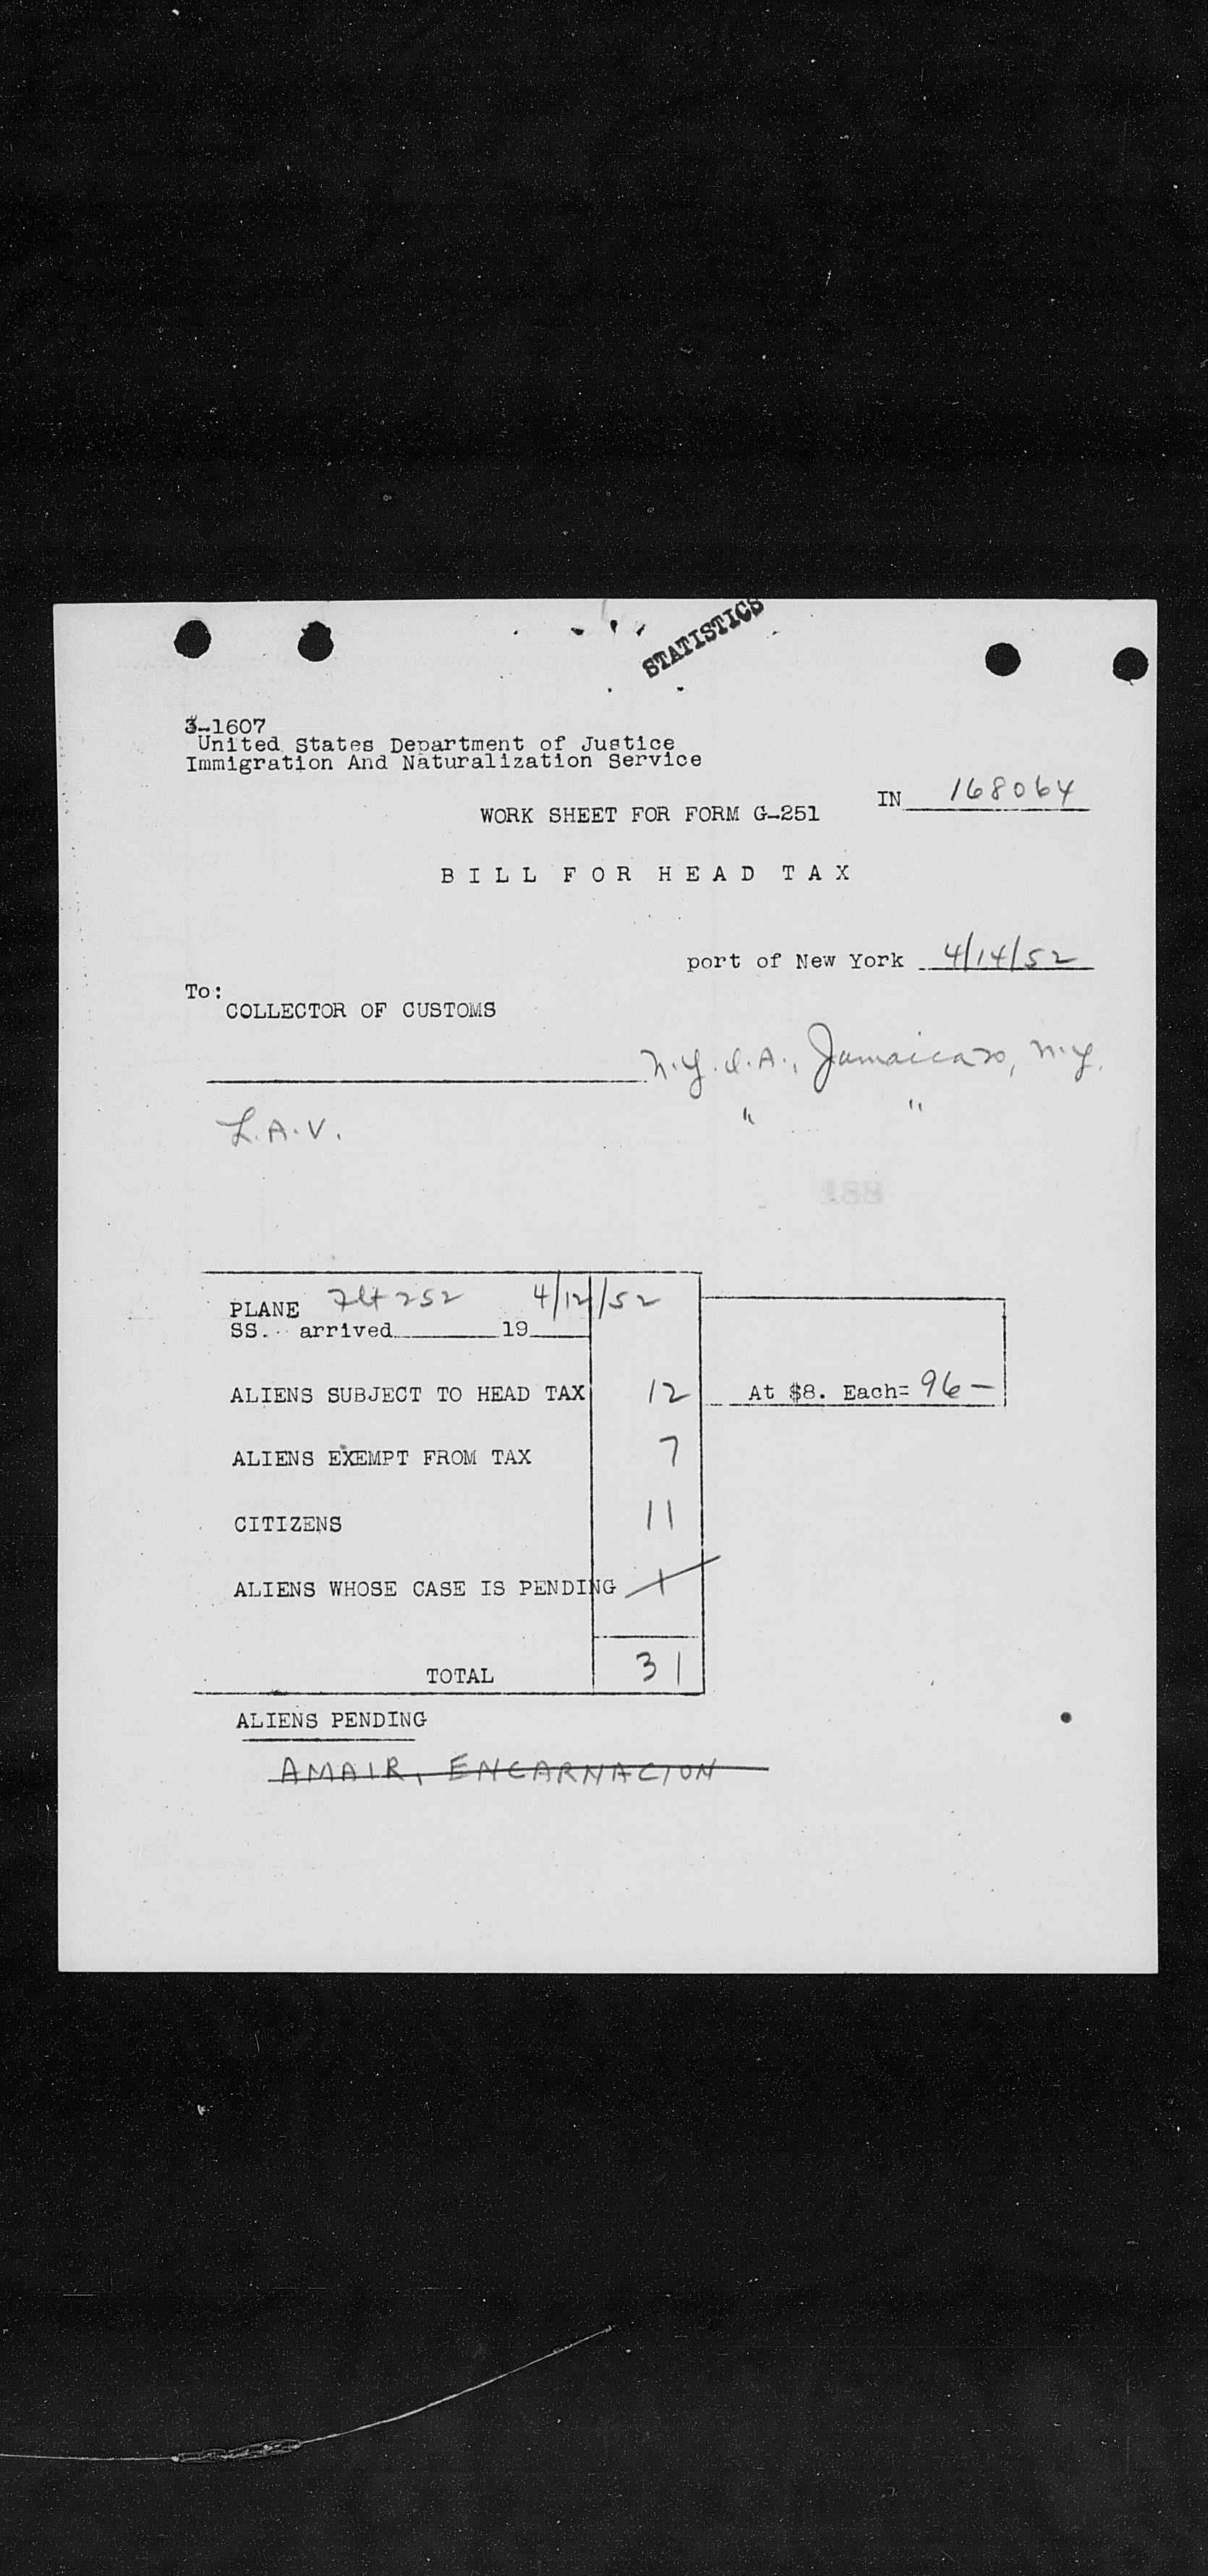 STATISTICS
3-1607
United States Department of Justice
Immigration And Naturalization Service
IN 168064
WORK SHEET FOR FORM G-251
BILL FOR HEAD TAX
port of New York 4/14/52
To:
COLLECTOR OF CUSTOMS
N.Y.I.A., Jamaica, N.Y.
L.A.V. " "
188
PLANE Flt 252 4/12/52
SS. arrived 19
ALIENS SUBJECT TO HEAD TAX 12 At $8. Each= 96-
ALIENS EXEMPT FROM TAX 7
CITIZENS 11
ALIENS WHOSE CASE IS PENDING 1
TOTAL 31
ALIENS PENDING
AMAIR, ENCARNACION